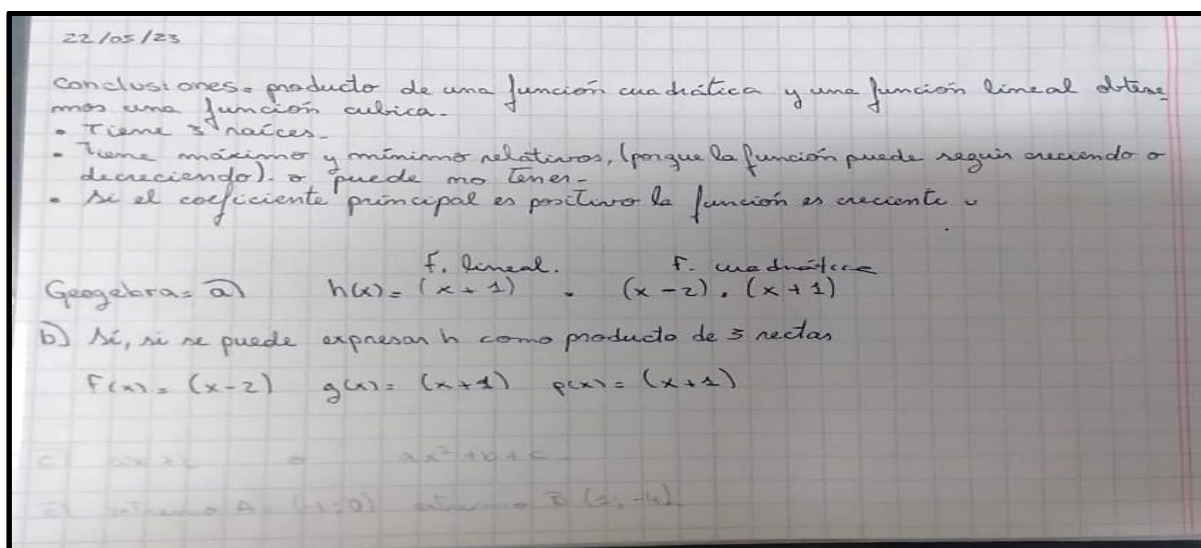 22/05/23
conclusiones. producto de una función cuadrática y una función lineal obtene
mos una función cubica.
• Tiene 3 raíces.
• Tiene máximo y mínimo relativos, (porque la función puede seguir creciendo o
decreciendo). o puede no tener.
• Si el coeficiente principal es positivo la función es creciente
f. lineal. f. cuadrática
Geogebra= a) h(x)= (x+1) . (x-2).(x+1)
b) Sí, si se puede expresar h como producto de 3 rectas
f(x)= (x-2) g(x)= (x+1) p(x)= (x+1)
c) ax+b o ax²+b+c
extremo A= (-1;0) extremo B (1;-4)